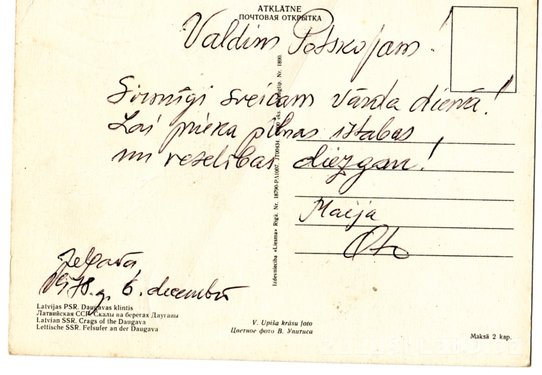 ATKLĀTNE
ПОЧТОВАЯ ОТКРЫТКА
Valdim Potskojam!
Sirsnīgi sveicam vārda dienā!
Lai prieka pilnas istabas
un veselības diezgan!
Maija
Oto
Jelgavā,
1978. g. 6. decembrī
Latvijas PSR. Daugavas klintis
Латвийская ССР. Скалы на берегах Даугавы
Latvian SSR. Crags of the Daugava
Lettische SSR. Felsufer an der Daugava
Izdevniecība «Liesma» Rīgā. Nr.
V. Upīša krāsu foto
Цветное фото В. Упитиса
Maksā 2 kap.